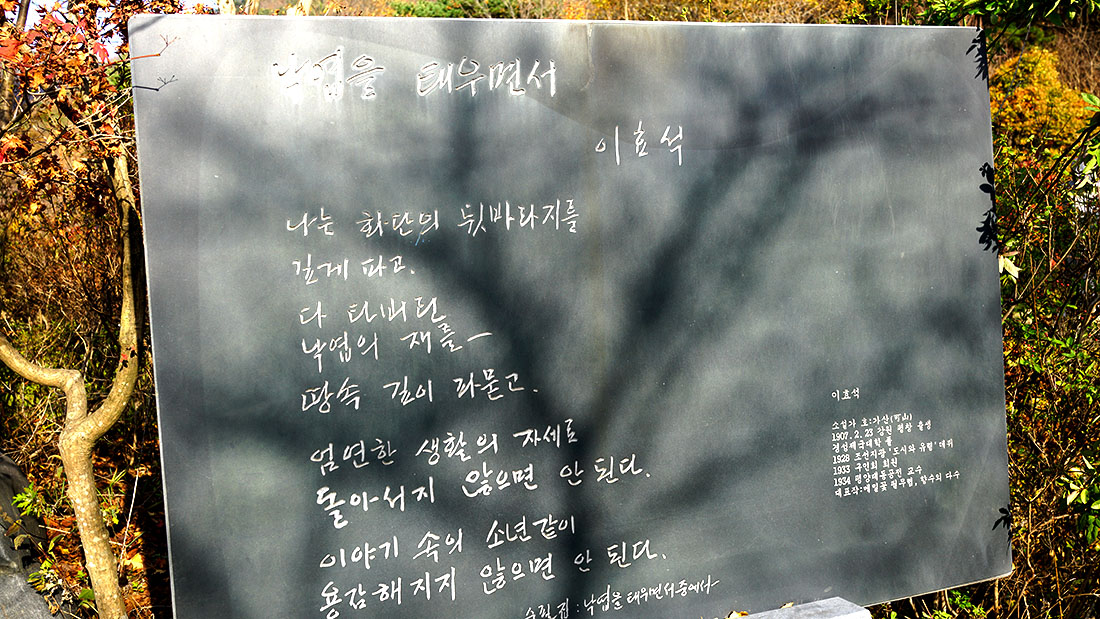 낙엽을 태우면서
이효석
나는 화단의 뒷바라지를
깊게 파고.
다 타버린
낙엽의 재를—
땅속 깊이 파묻고.
엄연한 생활의 자세로
돌아서지 않으면 안 된다.
이야기 속의 소년같이
용감해지지 않으면 안 된다.
수필집 : 낙엽을 태우면서 중에서—
이효석
소설가 호:가산(可山)
1907.2.23 강원 평창 출생
경성제국대학 졸
1928 조선지광 '도시와 유령' 데뷔
1933 구인회 회원
1934 평양대동공전 교수
대표작:메밀꽃 필무렵, 향수외 다수